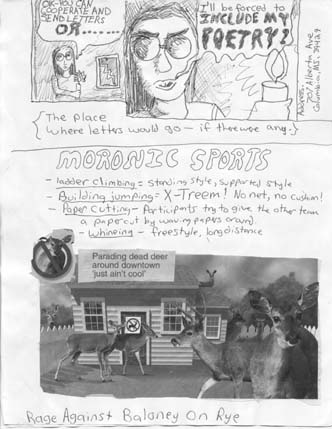 OK-YOU CAN
COOPERATE AND
SEND LETTERS
OR......
I'll be forced to
INCLUDE MY
POETRY!
Address:
Columbia, MS. 39429
{The place
where letters would go — if there were any.}
MORONIC SPORTS
- ladder climbing = standing style, supported style
- Building jumping = X-Treem! No net, no cushion!
- Paper cutting - Participants try to give the other team
a papercut by waving papers around.
- Whineing - freestyle, long distance
Parading dead deer
around downtown
'just ain't cool'
Rage Against Baloney On Rye